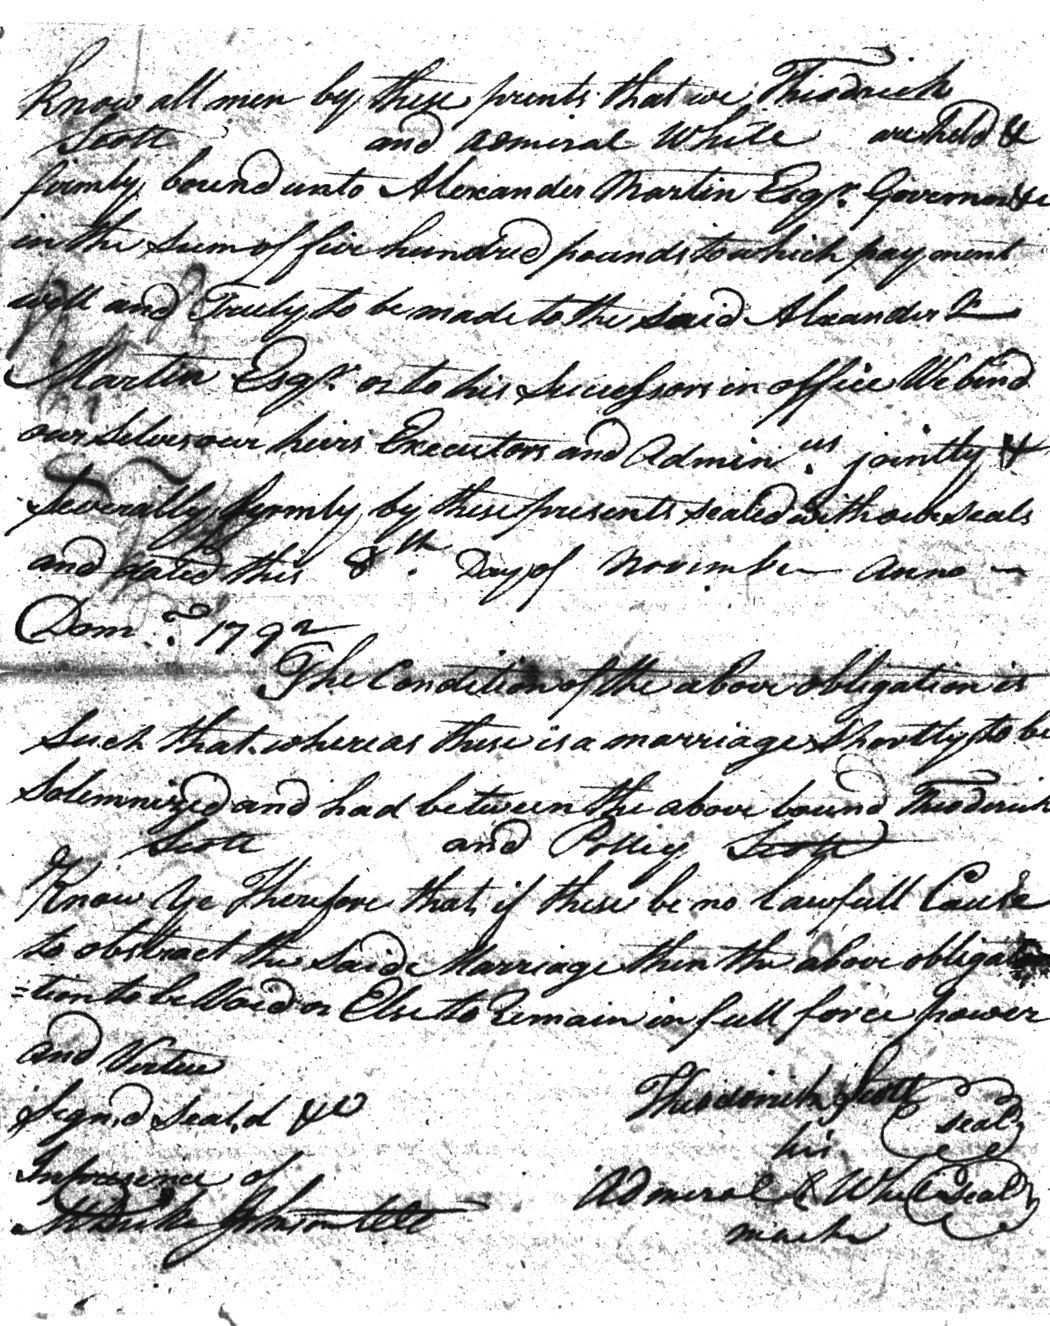 Know all men by these prents that we Thiodrick
Scott and Admiral White are held &
firmly bound unto Alexander Martin Esqr. Governor &c
in the Sum of five hundred pounds to which payment
well and Truly to be made to the said Alxander
Martin Esqr. or to his Successors in office We bind
our Selves our heirs Executors and Admin.us jointly &
Severally firmly by these presents sealed with our seals
and dated this 8th. Day of November Anno
Dom. 1792
The Condition of the above obligation is
Such that whereas there is a marriage Shortly to be
Solemnized and had between the above bound Thiodrick
Scott and Polley Scott
Know Ye Therefore that if there be no lawfull Cause
to obstract the Said Marriage then the above obliga
=tion to be Void or Else to Remain in full force power
and Virtue
Signd Seal,d &c
Thiodrick Scott seal
his
Inpresence of
Admeral X White seal
mark